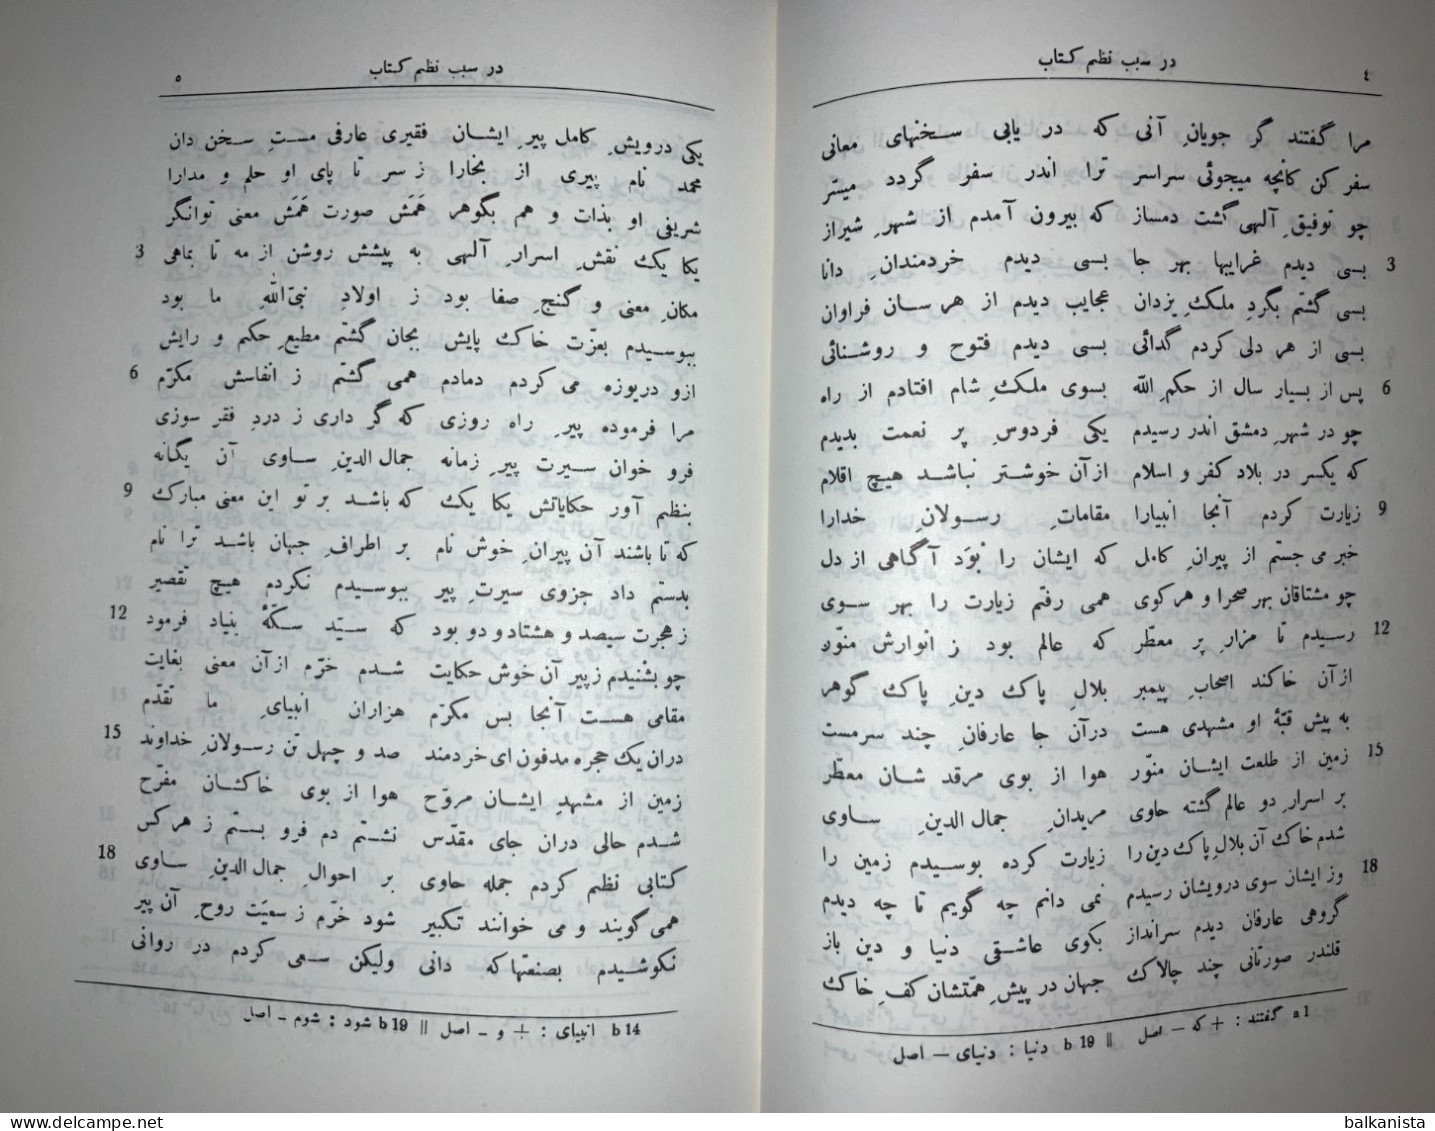 در سبب نظم کتاب
٤
مرا گفتند گر جویانِ آنی که در یابی سخنهای معانی
سفر کن کانچه میجوئی سراسر ترا اندر سفر گردد میسّر
چو توفیقِ آلهی گشت دمساز که بیرون آمدم از شهرِ شیراز
3 بسی دیدم غرایبها بهر جا بسی دیدم خردمندانِ دانا
بسی گشتم بگردِ ملکِ یزدان عجایب دیدم از هر سان فراوان
بسی از هر دلی کردم گدائی بسی دیدم فتوح و روشنائی
6 پس از بسیار سال از حکم الله بسوی ملکِ شام افتادم از راه
چو در شهرِ دمشق اندر رسیدم یکی فردوسِ پر نعمت بدیدم
که یکسر در بلاد کفر و اسلام از آن خوشتر نباشد هیچ اقلام
9 زیارت کردم آنجا انبیارا مقاماتِ رسولانِ خدارا
خبر می جستم از پیرانِ کامل که ایشان را بُوَد آگاهی از دل
چو مشتاقان بهر صحرا و هر کوی همی رفتم زیارت را بهر سوی
12 رسیدم تا مزارِ پر معطّر که عالم بود ز انوارش منوّر
از آن خاکند اصحابِ پیمبر بلالِ پاک دینِ پاک گوهر
به پیش قبّهٔ او مشهدی هست در آن جا عارفانِ چند سرمست
15 زمین از طلعت ایشان منوّر هوا از بوی مرقد شان معطّر
بر اسرارِ دو عالم گشته حاوی مریدانِ جمال الدینِ ساوی
شدم خاک آن بلالِ پاک دین را زیارت کرده بوسیدم زمین را
18 وز ایشان سوی درویشان رسیدم نمی دانم چه گویم تا چه دیدم
گروهی عارفان دیدم سرانداز بکوی عاشقی دنیا و دین باز
قلندر صورتانی چند چالاک جهان در پیشِ همّتشان کفِ خاک
a 1 گفتند : + که – اصل || b 19 دنیا : دنیای – اصل
در سبب نظم کتاب
٥
یکی درویشِ کامل پیرِ ایشان فقیری عارفی مستِ سخن دان
محمد نام پیری از بخارا ز سر تا پای او حلم و مدارا
شریفی او بذات و هم بگوهر هَمَش صورت هَمَش معنی توانگر
3 یکا یک نقشِ اسرارِ آلهی به پیشش روشن از مه تا بماهی
مکانِ معنی و گنجِ صفا بود ز اولادِ نبیّ اللهِ ما بود
ببوسیدم بعزّت خاک پایش بجان گشتم مطیعِ حکم و رایش
6 ازو دریوزه می کردم دمادم همی گشتم ز انفاسش مکرّم
مرا فرموده پیرِ راه روزی که گر داری ز دردِ فقر سوزی
فرو خوان سیرت پیرِ زمانه جمال الدینِ ساوی آن یگانه
9 بنظم آور حکایاتش یکا یک که باشد بر تو این معنی مبارک
که تا باشند آن پیرانِ خوش نام بر اطرافِ جهان باشد ترا نام
بدستم داد جزوی سیرتِ پیر ببوسیدم نکردم هیچ تقصیر
12 ز هجرت سیصد و هشتاد و دو بود که سیّد سکّهٔ بنیاد فرمود
چو بشْنیدم ز پیر آن خوش حکایت شدم خرّم از آن معنی بغایت
مقامی هست آنجا بس مکرّم هزاران انبیایِ ما تقدّم
15 دران یک حجره مدفون ای خردمند صد و چهل تن رسولانِ خداوند
زمین از مشهدِ ایشان مروّح هوا از بوی خاکشان مفرّح
شدم حالی دران جای مقدّس نشستم دم فرو بستم ز هر کس
18 کتابی نظم کردم جمله حاوی بر احوالِ جمال الدینِ ساوی
همی گویند و می خوانند تکبیر شود خرّم ز سعیَت روحِ آن پیر
نکوشیدم بصنعتها که دانی ولیکن سعی کردم در روانی
b 14 انبیای : + و – اصل || b 19 شود : شوم – اصل
balkanista